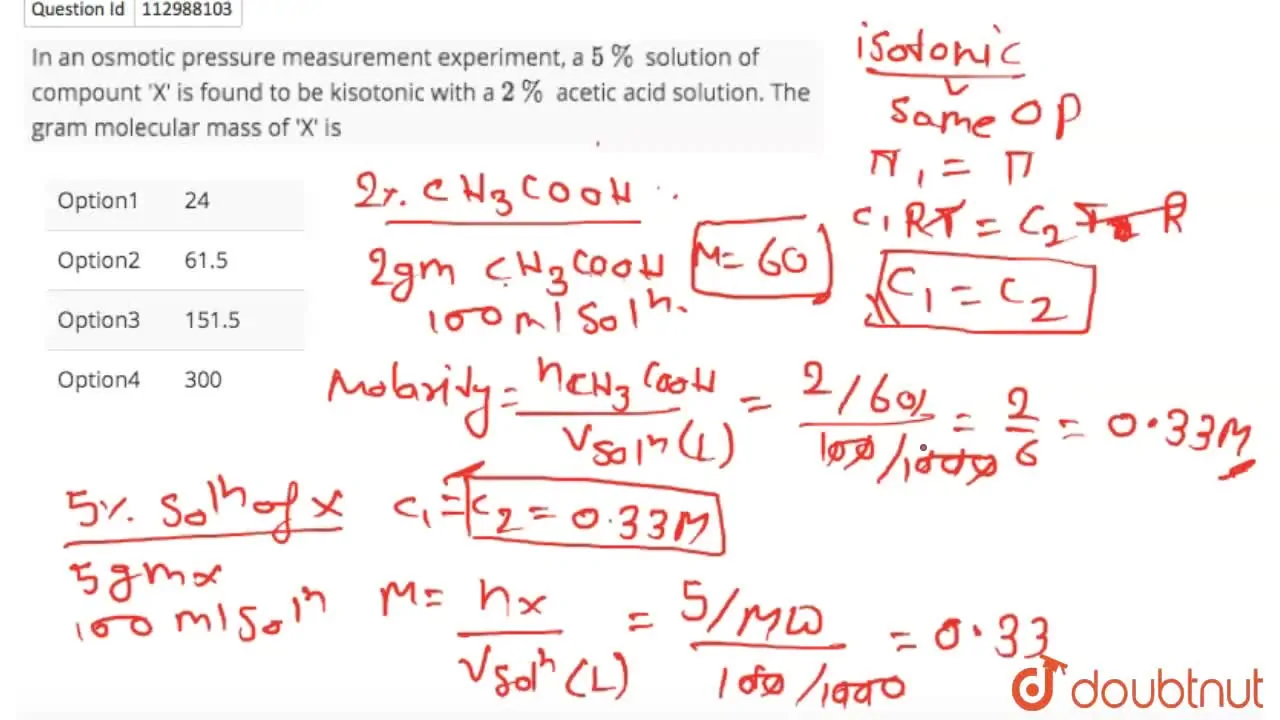 Question Id 112988103
In an osmotic pressure measurement experiment, a 5 % solution of
compount 'X' is found to be kisotonic with a 2 % acetic acid solution. The
gram molecular mass of 'X' is
Option1 24
Option2 61.5
Option3 151.5
Option4 300
isotonic
Same OP
π₁ = π
C₁RT = C₂ T₂ R
C₁ = C₂
2%. CH₃COOH
2gm CH₃COOH M= 60
100 ml Solⁿ.
Molarity = nCH₃COOH / V Solⁿ (L) = 2/60 / 100/1000 = 2/6 = 0.33M
5%. Solⁿ of X
C₁ = C₂ = 0.33M
5gm x
100 ml Solⁿ
M = nx / V Solⁿ (L) = 5/MW / 100/1000 = 0.33
doubtnut